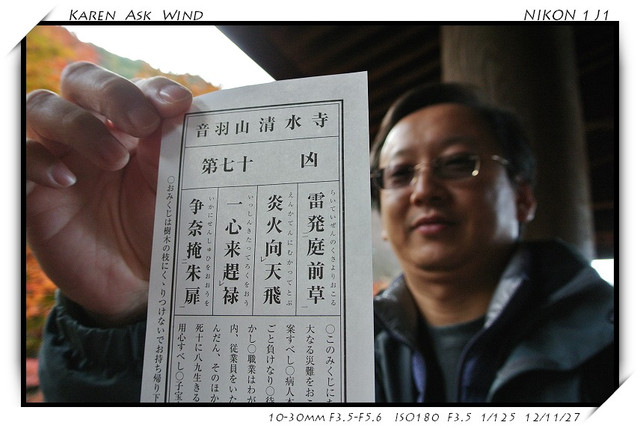 KAREN ASK WIND
NIKON 1 J1
音羽山清水寺
第七十 凶
らいていぜんのくさよりおこる
雷発庭前草
えんかてんにむかってとぶ
炎火向天飛
いっしんきたってろくをおう
一心来趕禄
いかにせんしゅひをおおうを
争奈掩朱扉
〇このみくじにあ
大なる災難をおこ
案ずべし〇病人本
ごと負けなり〇待
かし〇職業はわが
内、従業員をいた
んだん、そのほか
死十に八九生きる
用心すべし〇子宝
〇おみくじは樹木の枝にくゝりつけないでお持ち帰り下
10-30MM F3.5-F5.6 ISO180 F3.5 1/125 12/11/27